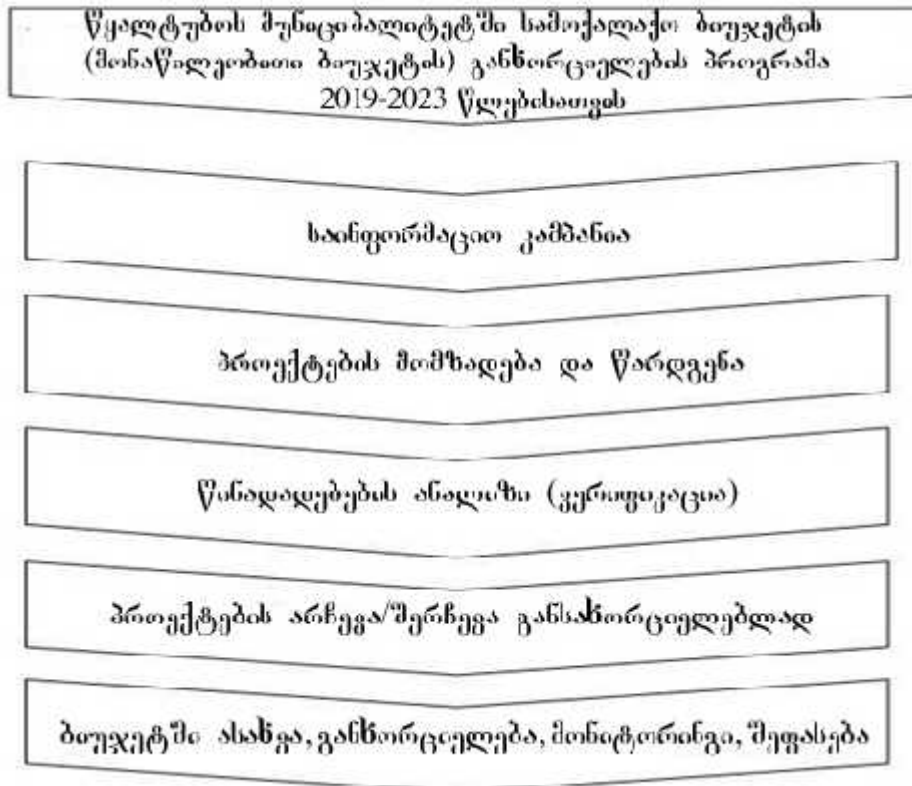 წყალტუბოს მუნიციპალიტეტში სამოქალაქო ბიუჯეტის
(მონაწილეობითი ბიუჯეტის) განხორციელების პროგრამა
2019-2023 წლებისათვის
საინფორმაციო კამპანია
პროექტების მომზადება და წარდგენა
წინადადებების ანალიზი (ვერიფიკაცია)
პროექტების არჩევა/შერჩევა განსახორციელებლად
ბიუჯეტში ასახვა, განხორციელება, მონიტორინგი, შეფასება